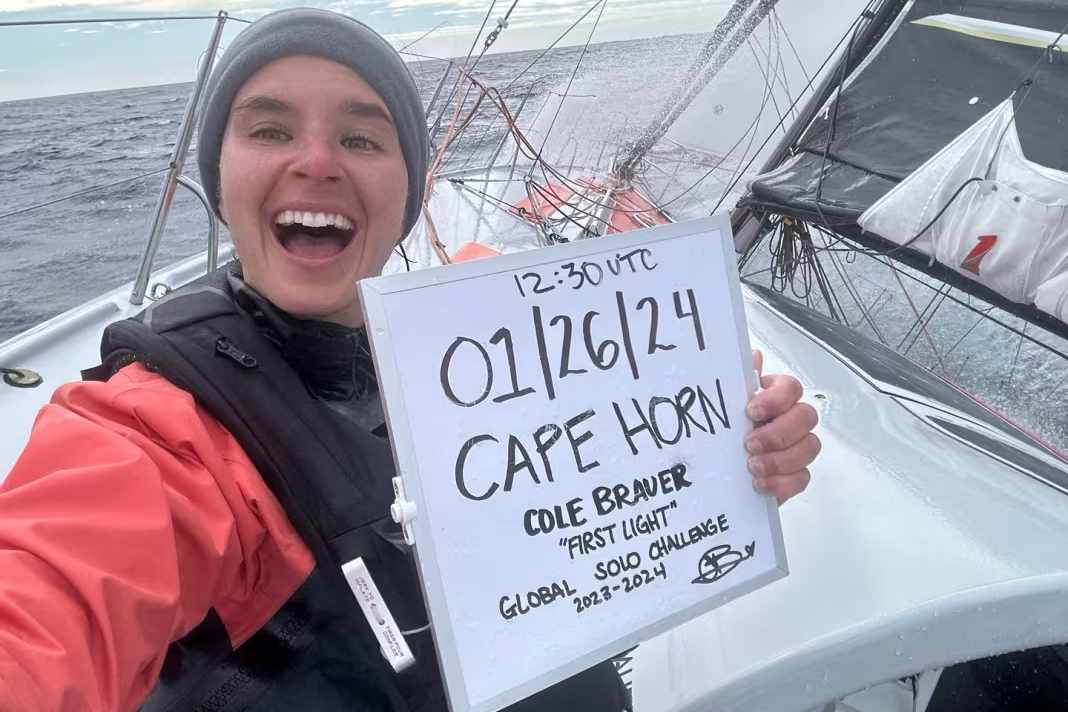 12:30 UTC
01/26/24
CAPE HORN
COLE BRAUER
"FIRST LIGHT"
GLOBAL SOLO CHALLENGE
2023-2024
1